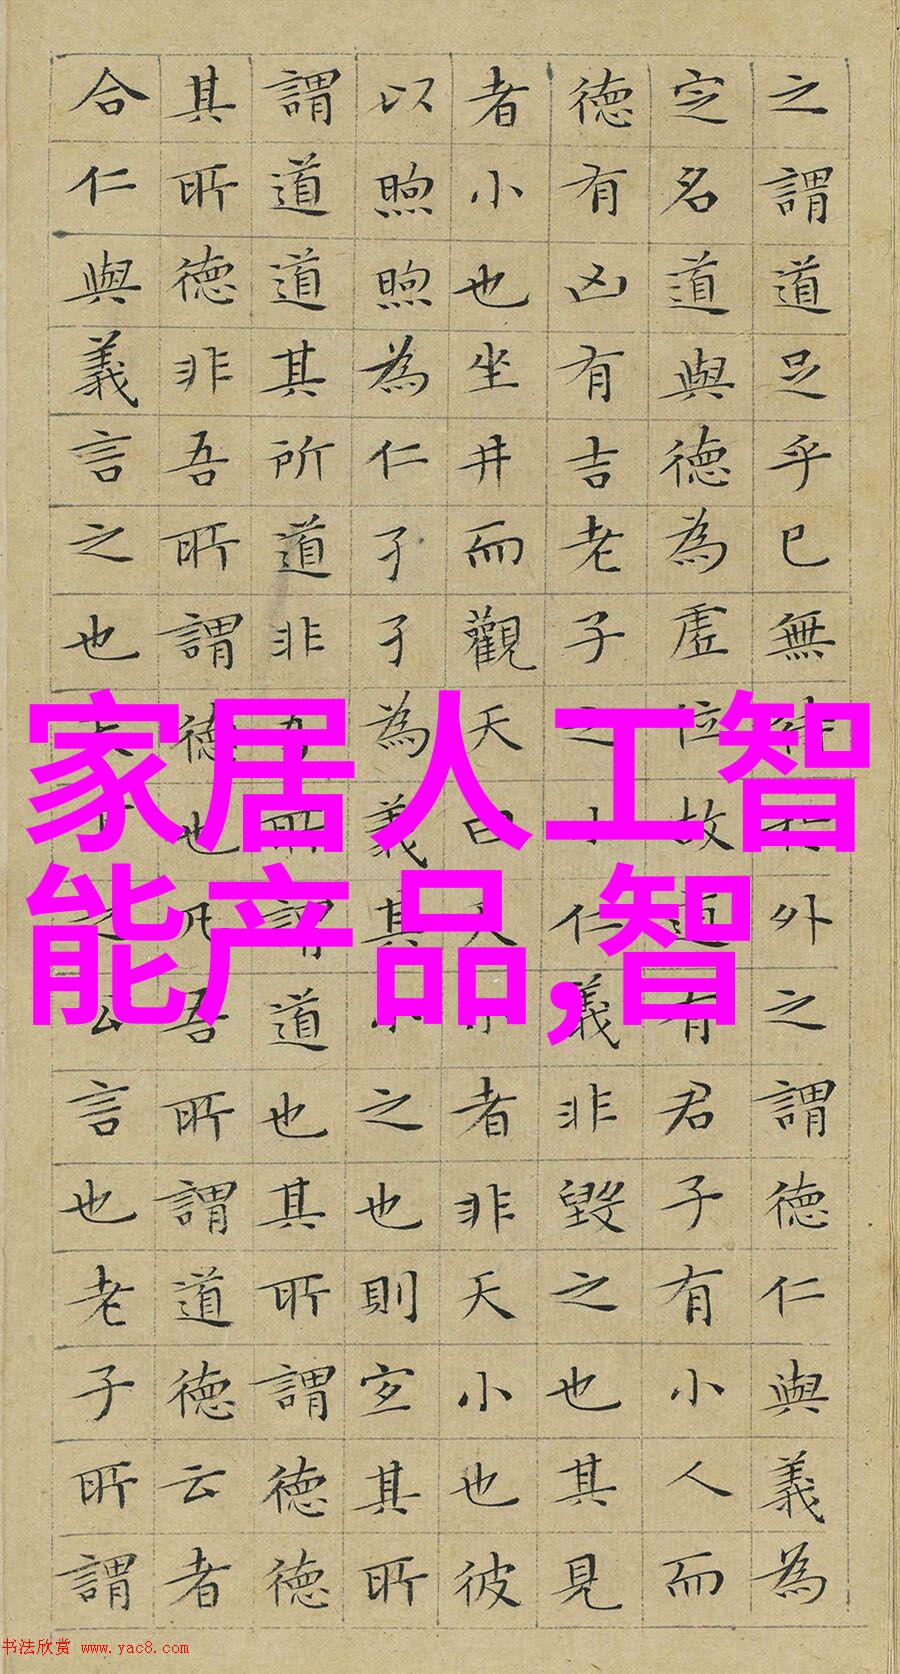 家居人工智
能产品,智
之謂道足乎已無待外之謂德仁與義為
定名道與德為虛位故道有君子有小人而
德有凶有吉老子之小仁義非毀之也其見
者小也坐井而觀天曰天小者非天小也彼
以煦煦為仁孑孑為義其小之也則宜其所
謂道道其所道非吾所謂道也其所謂德德
其所德非吾所謂德也凡吾所謂道德云者
合仁與義言之也天下之公言也老子所謂
书法欣赏 www.yac8.com